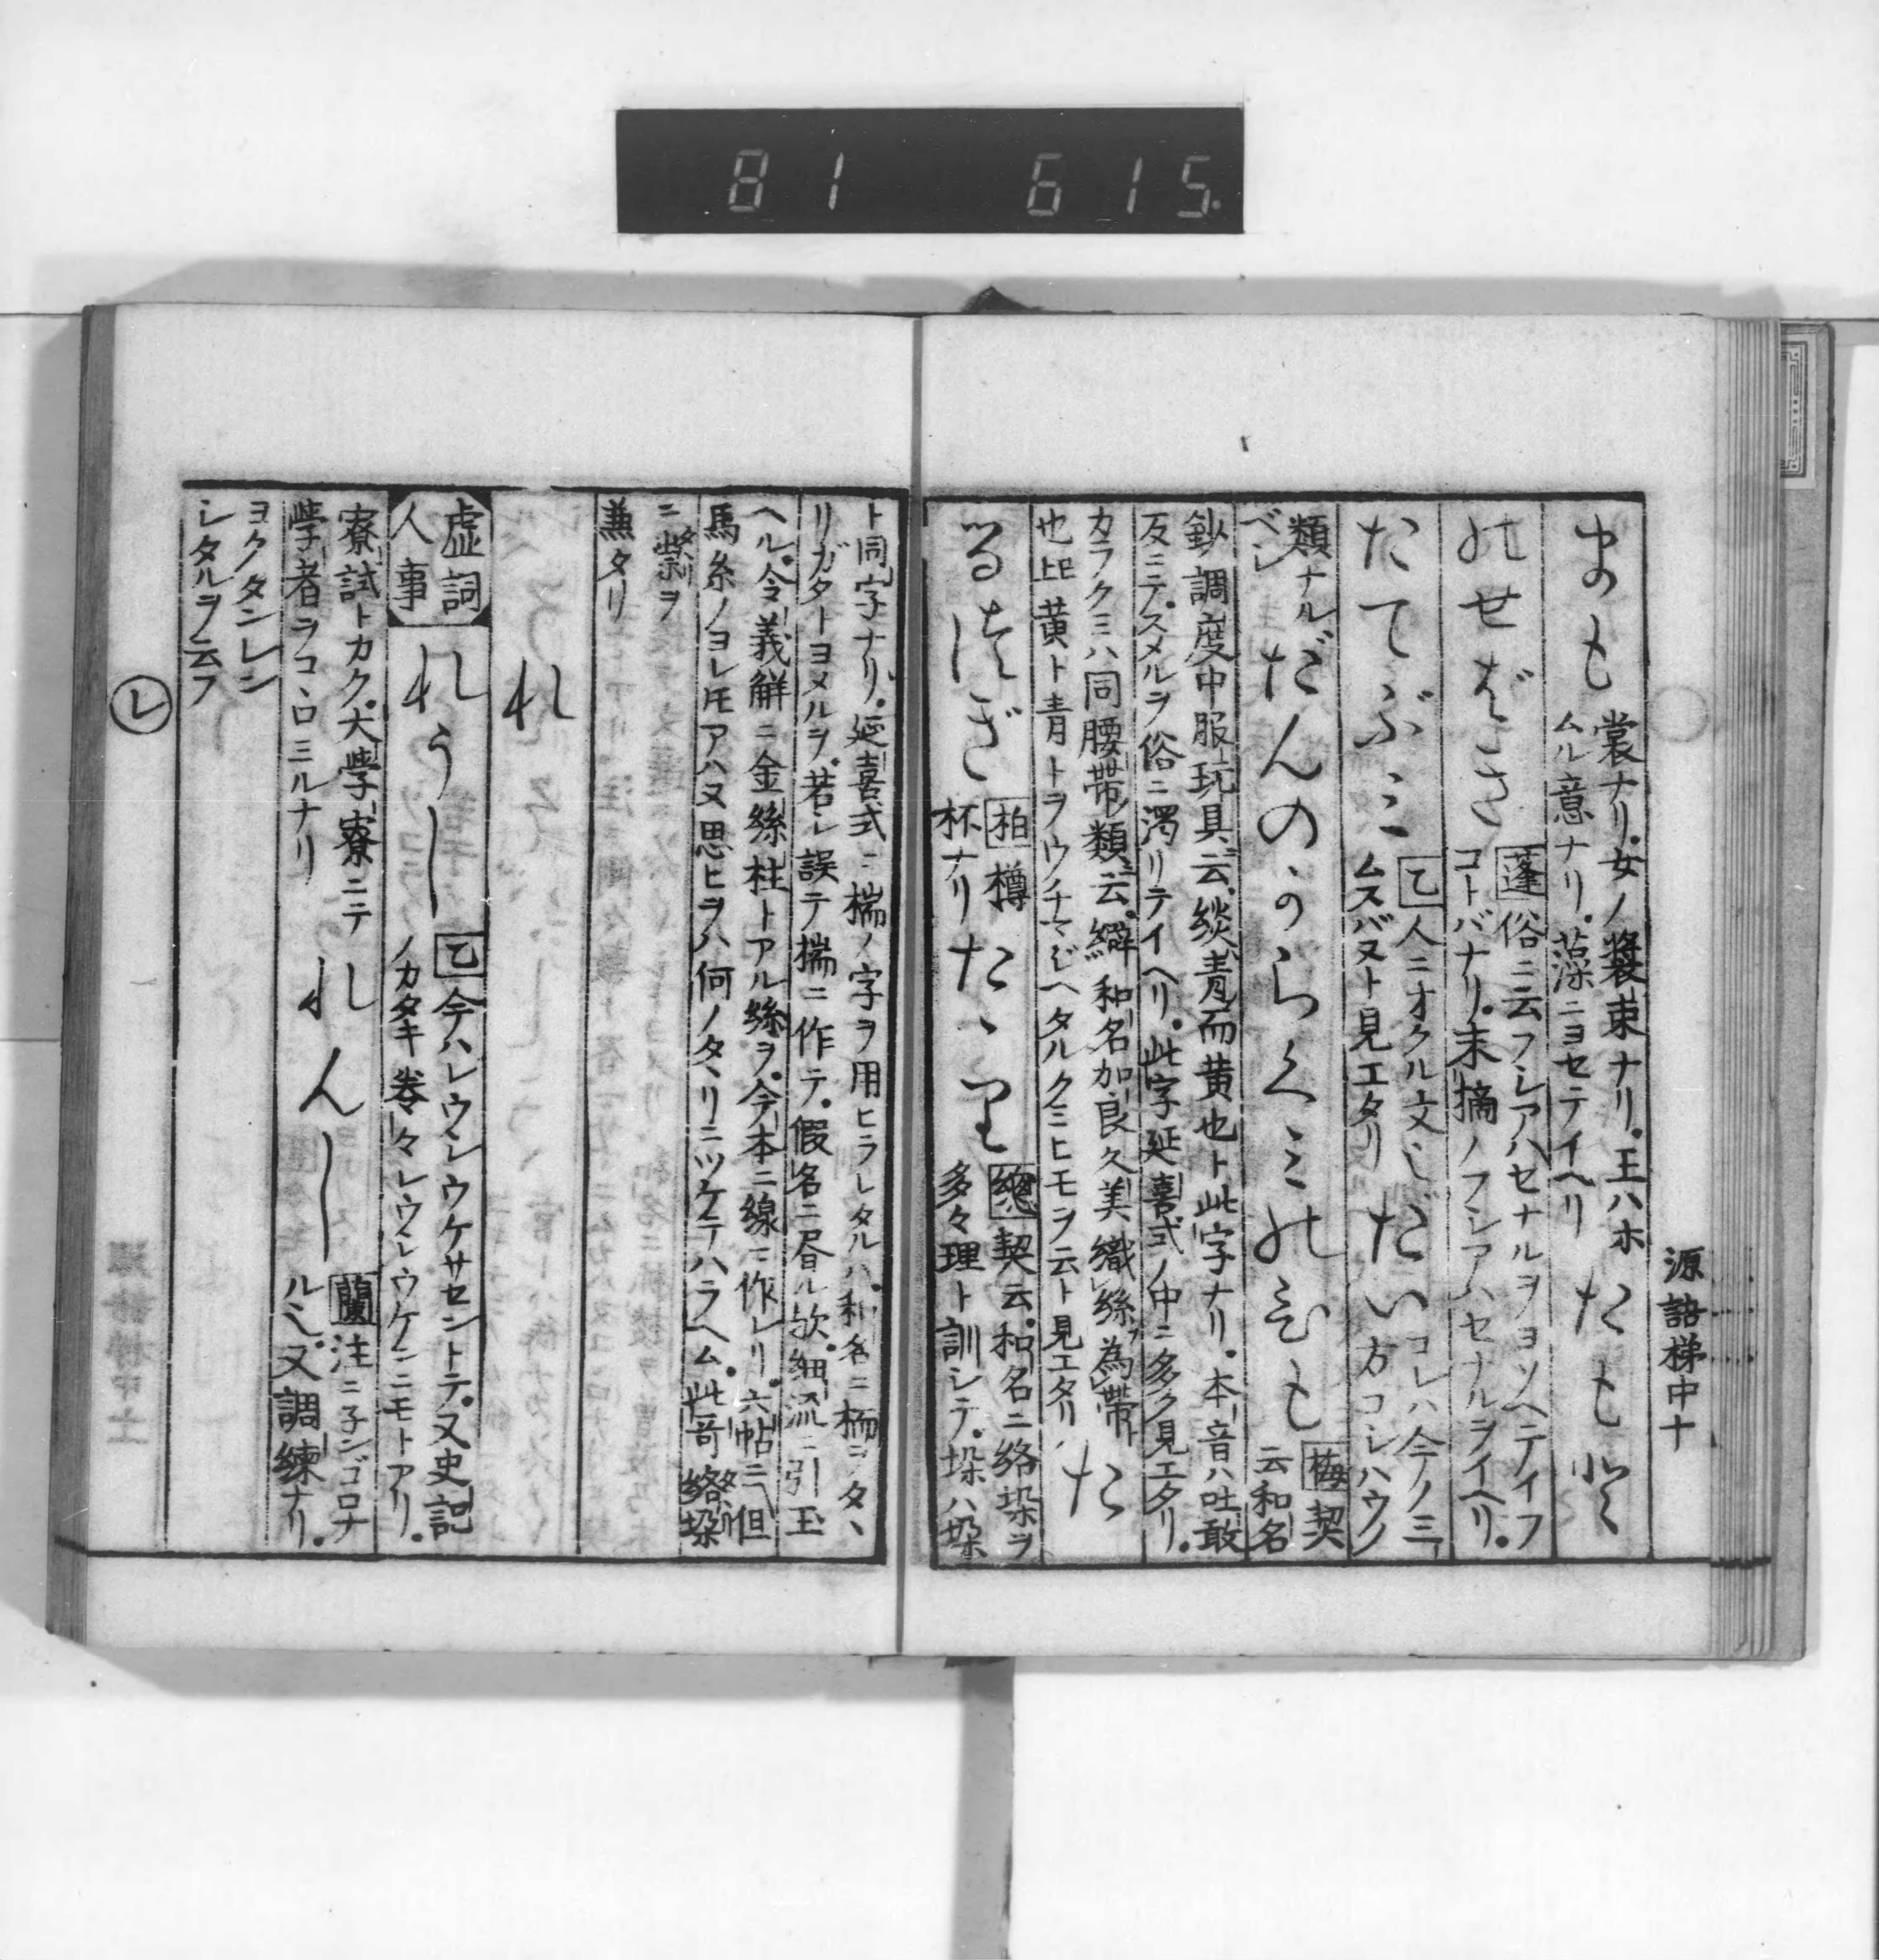 81 615.
源語梯中十
たまのも
裳ナリ。女ノ裝束ナリ。王ハホ
ムル意ナリ。藻ニヨセテイヘリ
たもと
のせばさ
蓬 俗ニ云フシアハセナルヲヨソヘテイフ
コトバナリ。末摘ノフシアハセナルヲイヘリ。
たてぶミ
乙 人ニオクル文シ
ムスバヌト見エタリ
だい
コレハ今ノ三
方コレハウノ
類ナル
ベシ
だんのからくミのひも
梅 契
云和名
鈔調度中服玩具云。緂青而黄也ト此字ナリ。本音ハ吐敢
反ニテ。スメルヲ俗ニ濁リテイヘリ。此字延喜式ノ中ニ多ク見エタリ。
カラクミハ同腰帶類云。䌟和名加良久美織絲為帶
也 黄ト青トヲウチマジヘタルクミヒモヲ云ト見エタリ
た
るつぎ
柏 樽
杯ナリ
たゝり
總 契云。和名ニ絡垜ヲ
多々理ト訓シテ。垜ハ堁
ト同字ナリ。延喜式ニ椯ノ字ヲ用ヒラレタルハ。和名ニ
リガタトヨメルヲ。若シ誤テ揣ニ作テ。假名ニ昏ル歟。細流ニ引玉
ヘル。令義解ニ金絲柱トアル絲ヲ。今本ニ線ニ作レリ。六帖ニ但
馬糸ノヨレ𪜈アハヌ思ヒヲハ何ノタヽリニツケテハラヘム。此哥絡垜
ニ祟ヲ
兼タリ
れ
虛詞
人事
れうし
乙 今ハレウシウケサセントテ。又史記
ノカタキ巻々レウシウケンニモトアリ。
寮試トカク。大學寮ニテ
學者ヲコヽロミルナリ
れんし
蘭 注ニ子ンゴロナ
ルシ又調練ナリ。
ヨクタンレン
シタルヲ云フ
レ